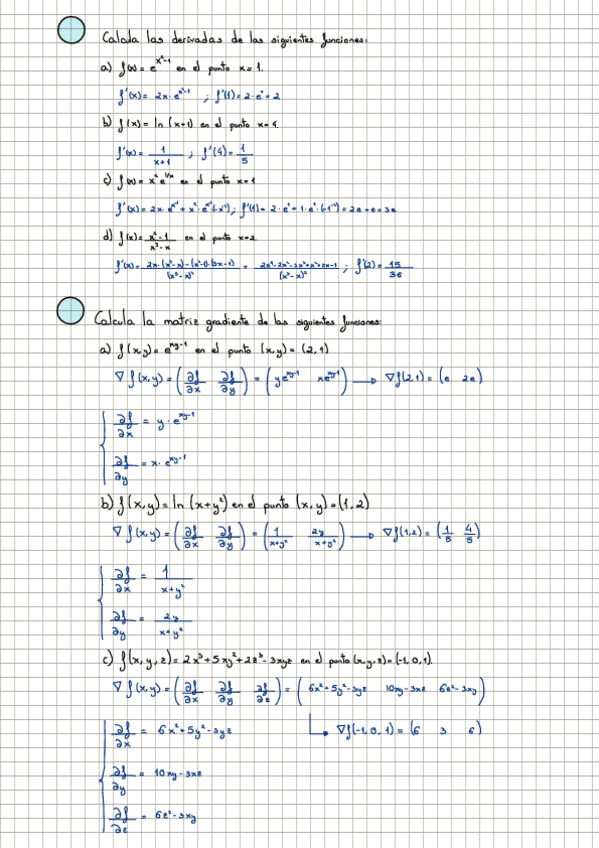 Calcula las derivadas de las siguientes funciones:
a) f(x) = e^(x²-1) en el punto x = 1.
f'(x) = 2x · e^(x²-1) ; f'(1) = 2 · e⁰ = 2
b) f(x) = ln (x+1) en el punto x = 4.
f'(x) = 1/(x+1) ; f'(4) = 1/5
c) f(x) = x² e^(1/x) en el punto x = 1
f'(x) = 2x · e^(x⁻¹) + x² · e^(x⁻¹) · (-x⁻²) ; f'(1) = 2 · e¹ + 1 · e¹ · (-1⁻²) = 2e + e = 3e
d) f(x) = (x²-1)/(x³-x) en el punto x=2
f'(x) = (2x · (x³-x) - (x²-1) · (3x-1))/(x³-x)² = (2x⁴-2x²-3x³+x²+3x-1)/(x³-x)² ; f'(2) = 15/36
Calcula la matriz gradiente de las siguientes funciones:
a) f(x,y) = e^(xy-1) en el punto (x,y) = (2,1)
∇f(x,y) = (∂f/∂x ∂f/∂y) = (y e^(xy-1) x e^(xy-1)) → ∇f(2,1) = (e 2e)
∂f/∂x = y · e^(xy-1)
∂f/∂y = x · e^(xy-1)
b) f(x,y) = ln (x+y²) en el punto (x,y) = (1,2)
∇f(x,y) = (∂f/∂x ∂f/∂y) = (1/(x+y²) 2y/(x+y²)) → ∇f(1,2) = (1/5 4/5)
∂f/∂x = 1/(x+y²)
∂f/∂y = 2y/(x+y²)
c) f(x,y,z) = 2x³+5xy²+2z³-3xyz en el punto (x,y,z) = (-1,0,1).
∇f(x,y) = (∂f/∂x ∂f/∂y ∂f/∂z) = (6x²+5y²-3yz 10xy-3xz 6z²-3xy)
∂f/∂x = 6x²+5y²-3yz ∇f(-1,0,1) = (6 3 6)
∂f/∂y = 10xy-3xz
∂f/∂z = 6z²-3xy